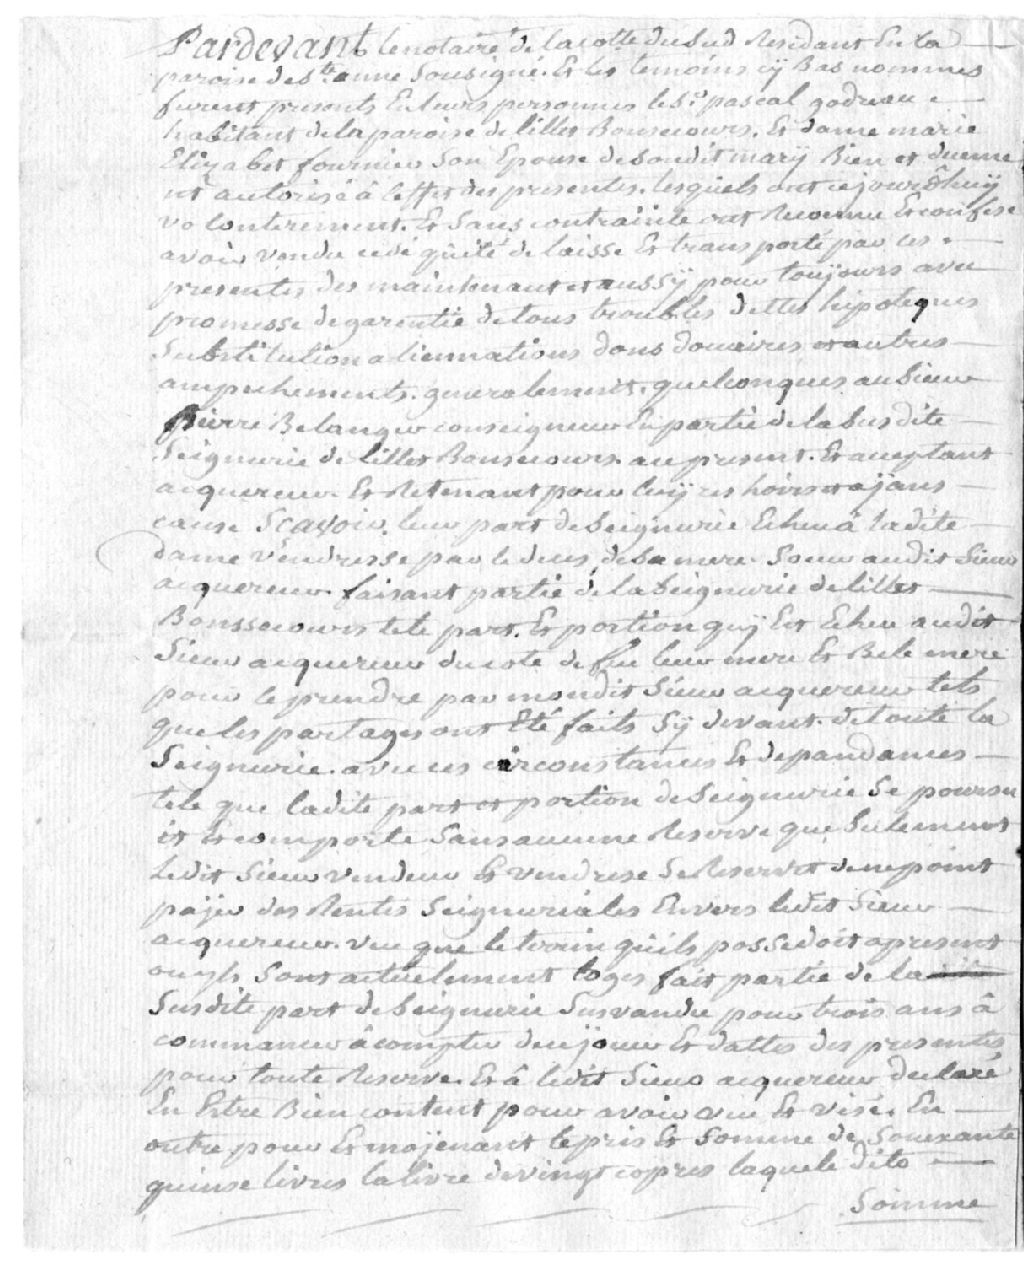 Pardevant le notaire de la cotte du Sud Residant En la
paroise de Ste anne Sousigné. Et les temoins cÿ Bas nommes
furent presents En leurs personnes le Sr pascal godreau
habitant de la paroise de lillet Bonsecours. Et dame marie
Elizabet fournier Son Epouse de Soudit marÿ Bien et dueme
nt autorisé â leffet des presentes. lesquels ont ce jourdhuÿ
volonterement. Et Sans contrainte ont Reconnu Et confesé
avoir vendu cedé quité delaisse Et transporté par ces
presentes des maintenant et aussÿ pour toujours avec
promesse de garentie de tous troubles dettes hipoteques
Substitution aliennations dons douaires et autres
ampechements. generalement. quelconques au Sieur
pierre Belanger conseigneur En partie de la Susdite
Seignurie de lillet Bonsecours. au present. Et aceptant
acquereur. Et Retenant pour luÿ ces hoirs et aÿans
cause Scavoir leur part de Seignurie Echeu â ladite
dame vendresse par le deces de Sa mere. Soeur audit Sieur
acquereur faisant partie de la Seignurie de lillet
Bonssecours tele part. Et portion quÿ Est Echeu audit
Sieur acquereur du coté de feu leur mere Et Bele mere
pour le prendre par mondit Sieur acquereur tels
que les partages ont Eté faits Sÿ devant. de toute la
Seignurie. avec ces circonstances Et depandances
tele que ladite part et portion de Seignurie Se poursu
it Et comporte Sans aucune Reserve que Sulement
ledit Sieur vendeur Et vendrese Se Reservet de ne point
païer des Rentes Seigneuriales Envers ledit Sieur
acquereur. vue que le terrin quils possedoit apresent
ou yls Sont actuelement loges fait partie de la
Susdite part de Seignurie Susvandu pour trois ans â
commancer â compter de ce jour Et dattes des presentes
pour toute Reserve. Et â ledit Sieur acquereur declaré
En Etre Bien content pour avoir vue Et visé. En
outre pour Et moÿenant le pris Et Somme de Souexante
quinse livres la livre de vingt copres laquele dite
Somme